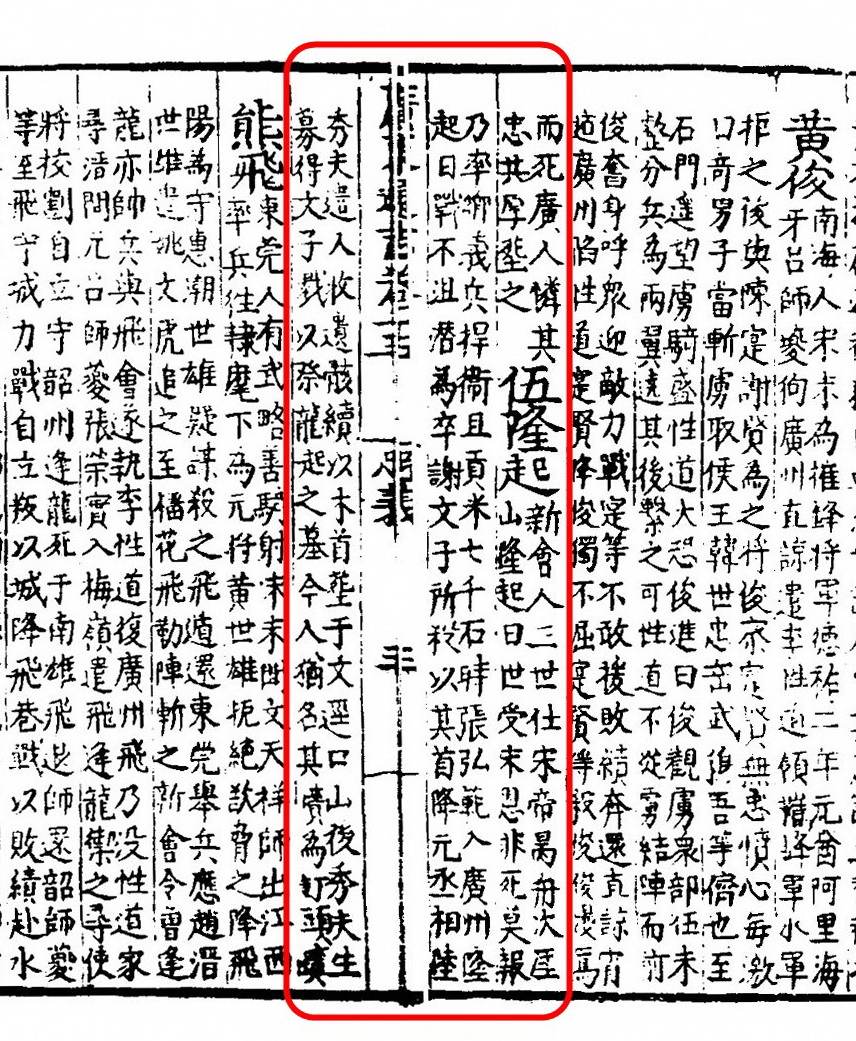 黃俊
南海人宋末為摧鋒將軍德祐二年元酋阿里海
牙呂師夔徇廣州直諒遣李性道領摧鋒軍水軍
拒之後與陳寔謝賢為之將俊亦寔賢無恚憤心每激
口奇男子當斬虜取侯王韓世忠岳武穆吾等儕也至
石門遙望虜騎盛性道大恐俊進曰俊觀虜衆部伍未
整分兵為兩翼遶其後擊之可性道不從虜結陣而前
俊奮身呼衆迎敵力戰寔等不敢援敗績奔還直諒宵
遁廣州陷性道寔賢降俊獨不屈寔賢等殺俊俊罵
而死廣人憐其
忠共厚塟之
伍隆起新會人三世仕宋帝昺舟次厓
山隆起曰世受宋恩非死莫報
乃率鄉義兵捍衛且貢米七千石時張弘範入廣州隆
起日戰不沮潛為卒謝文子所殺以其首降元丞相陸
廣東通志卷 忠義 三十
秀夫遣人收遺骸續以木首塟于文逕口山後秀夫生
募得文子戮以祭龍起之墓今人猶名其賣為釘頭嶺
熊飛
東莞人有武略善騎射宋末從文天祥師出江西
率兵往隸麾下為元將黃世雄扼絕欲脅之降飛
陽為守惠潮世雄疑謀殺之飛遁還東莞舉兵應趙溍
世雄遣姚文虎追之至榴花飛勒陣斬之新會令曾逢
龍亦帥兵與飛會逐執李性道復廣州飛乃沒性道家
尋溍聞元呂師夔張榮實入梅嶺遣飛逢龍禦之尋使
將校劉自立守韶州逢龍死于南雄飛退師還韶師夔
等至飛守城力戰自立叛以城降飛巷戰以敗績赴水